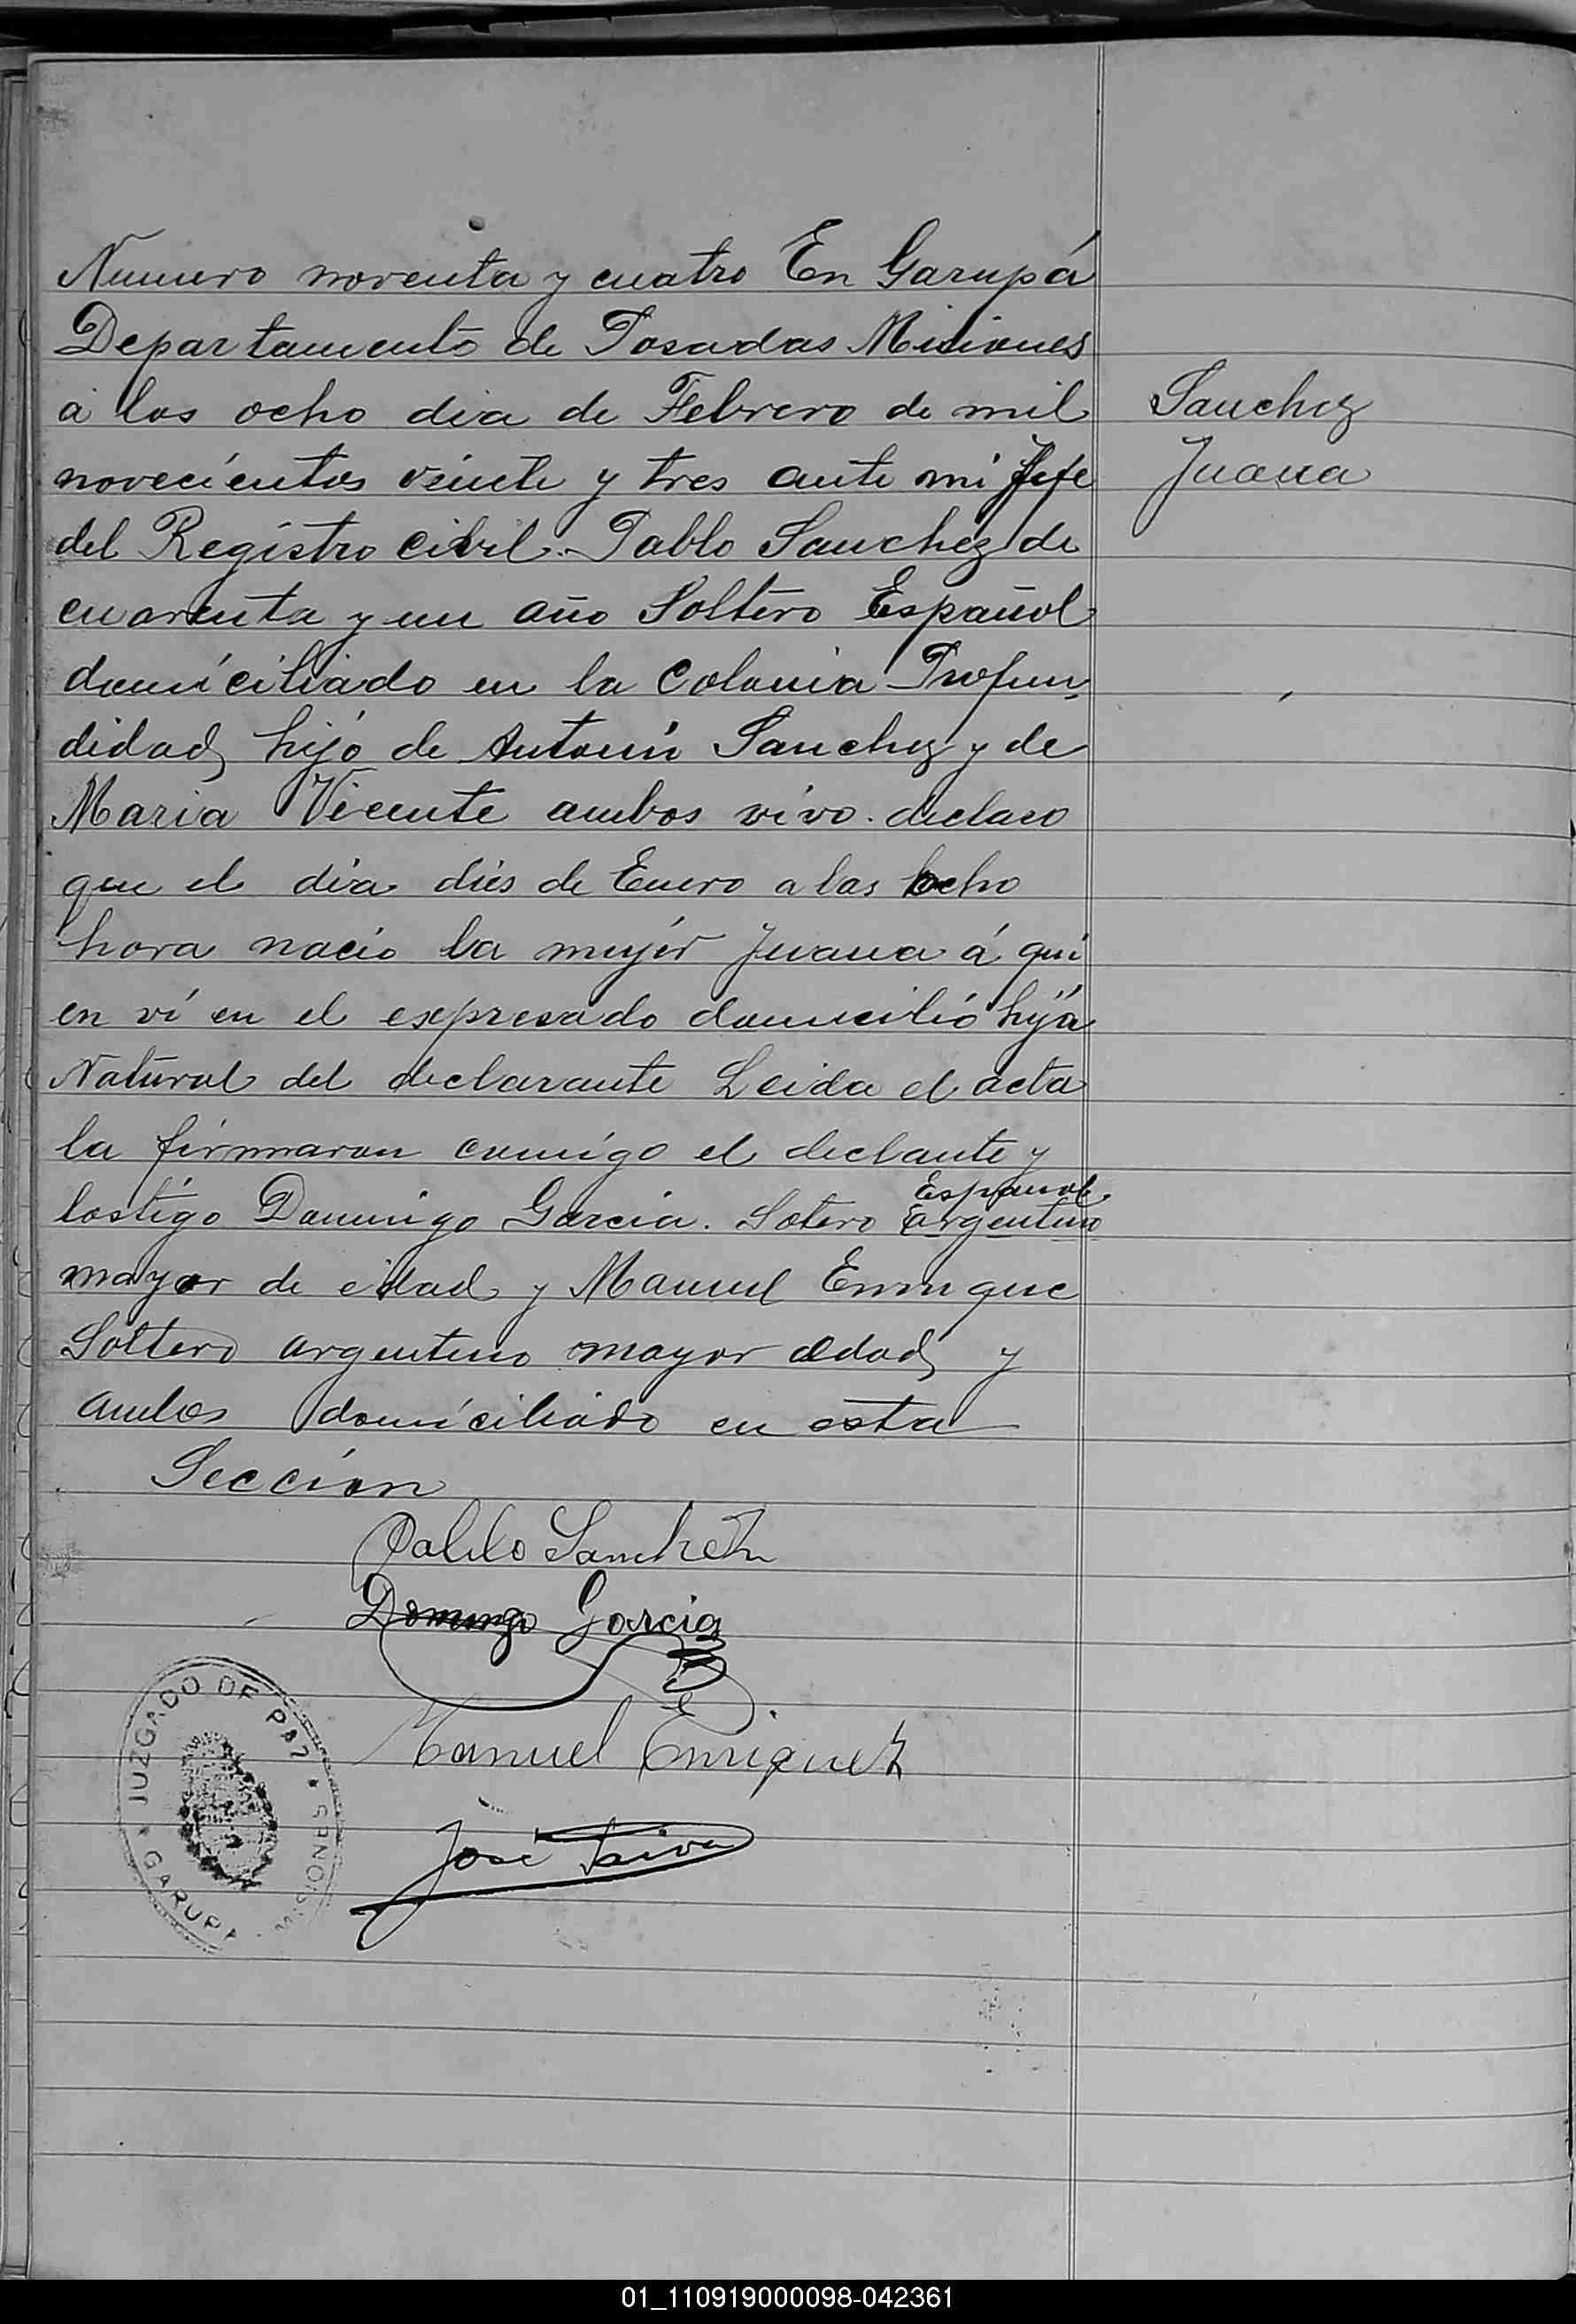 Numero noventa y cuatro En Garupá
Departamento de Posadas Misiones
a los ocho dia de Febrero de mil
novecientos veinte y tres ante mi Jefe
del Registro Civil. Pablo Sanchez de
cuarenta y un año Soltero Español
domiciliado en la Colonia Profun
didad, hijo de Antonio Sanchez y de
Maria Vicente ambos vivo. declaro
que el dia dies de Enero a las ocho
hora nacio la mujer Juana á qui
en ví en el expresado domicilio hija
Natural del declarante Leida el acta
la firmaron comigo el declante y
lostigo Domingo Garcia. Sotero argentino
Español
mayor de edad y Manuel Enrrique
Soltero argentino mayor edad, y
ambos domiciliado en esta
Seccion
Sanchez
Juana
Pablo Sanchez
Domingo Garcia
Manuel Enriquez
José
JUZGADO DE PAZ
GARUPA MISIONES
01_110919000098-042361